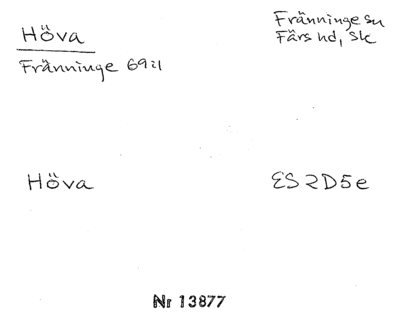 Höva
Fränninge sn
Färs hd, Sk
Fränninge 69:1
Höva
ES 2D5e
Nr 13877